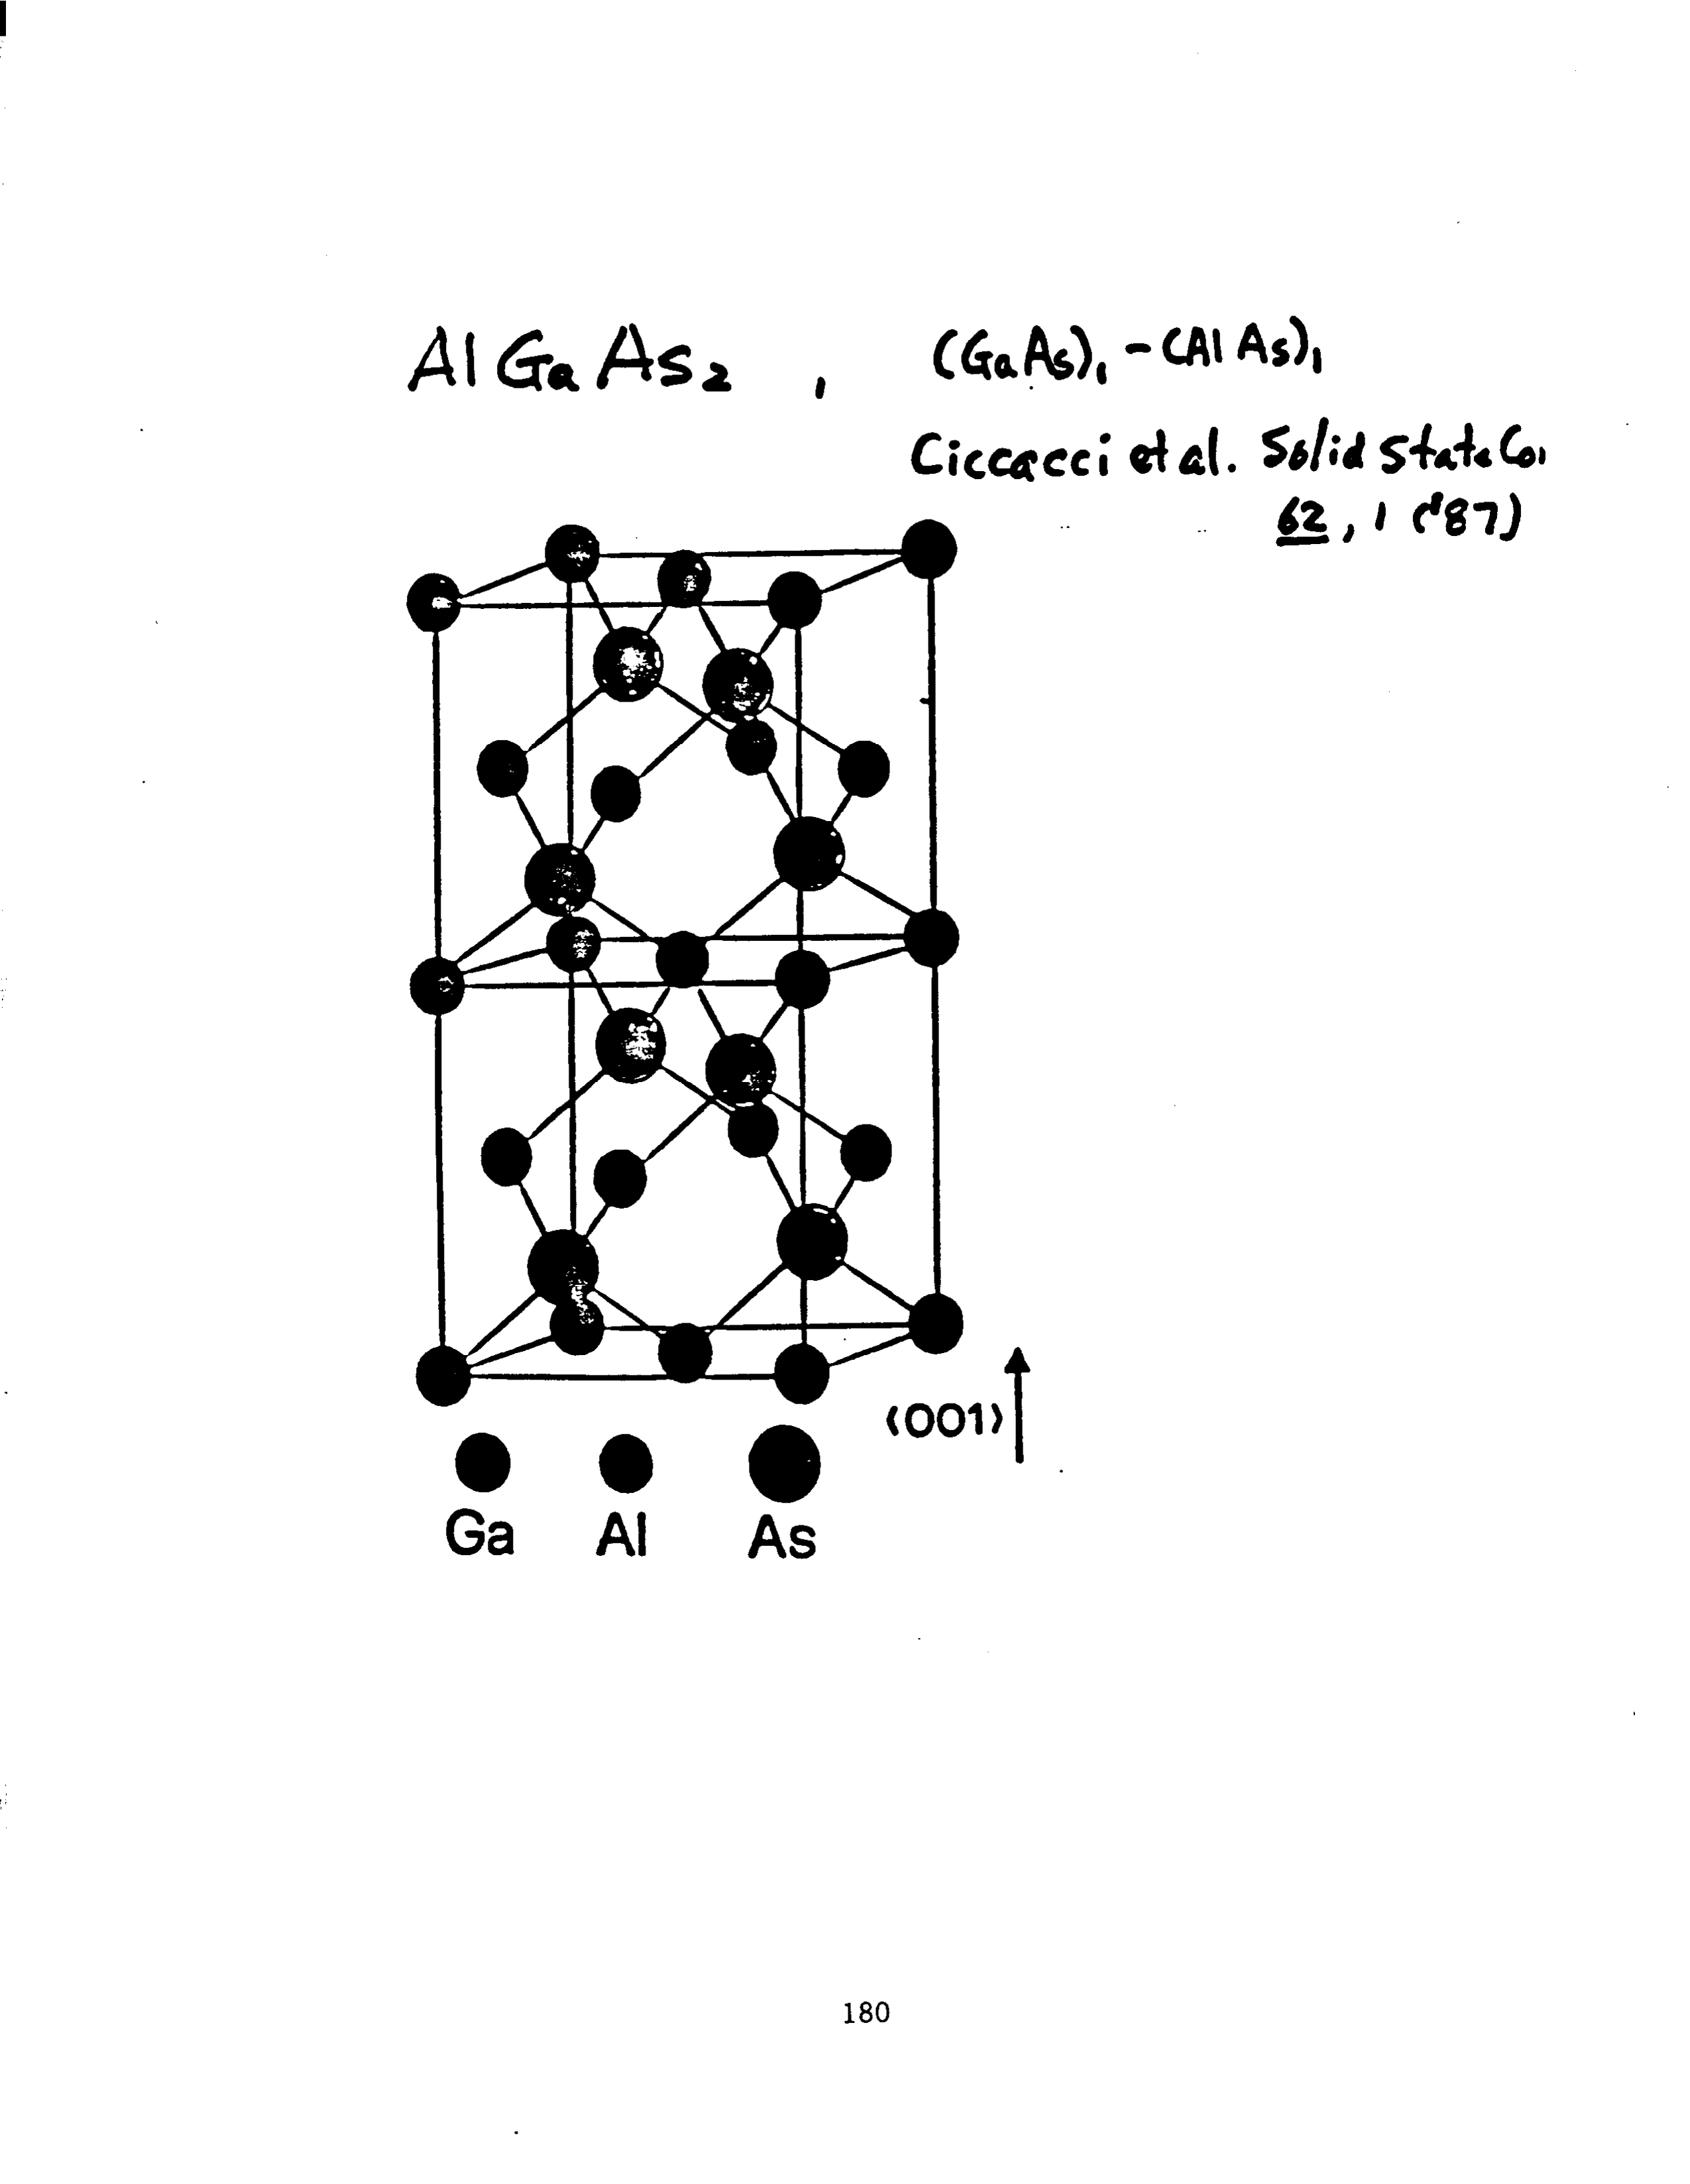 AlGaAs₂ , (GaAs)₁-(AlAs)₁
Ciccacci et al. Solid State Co
62, 1 ('87)
⟨001⟩
Ga Al As
180